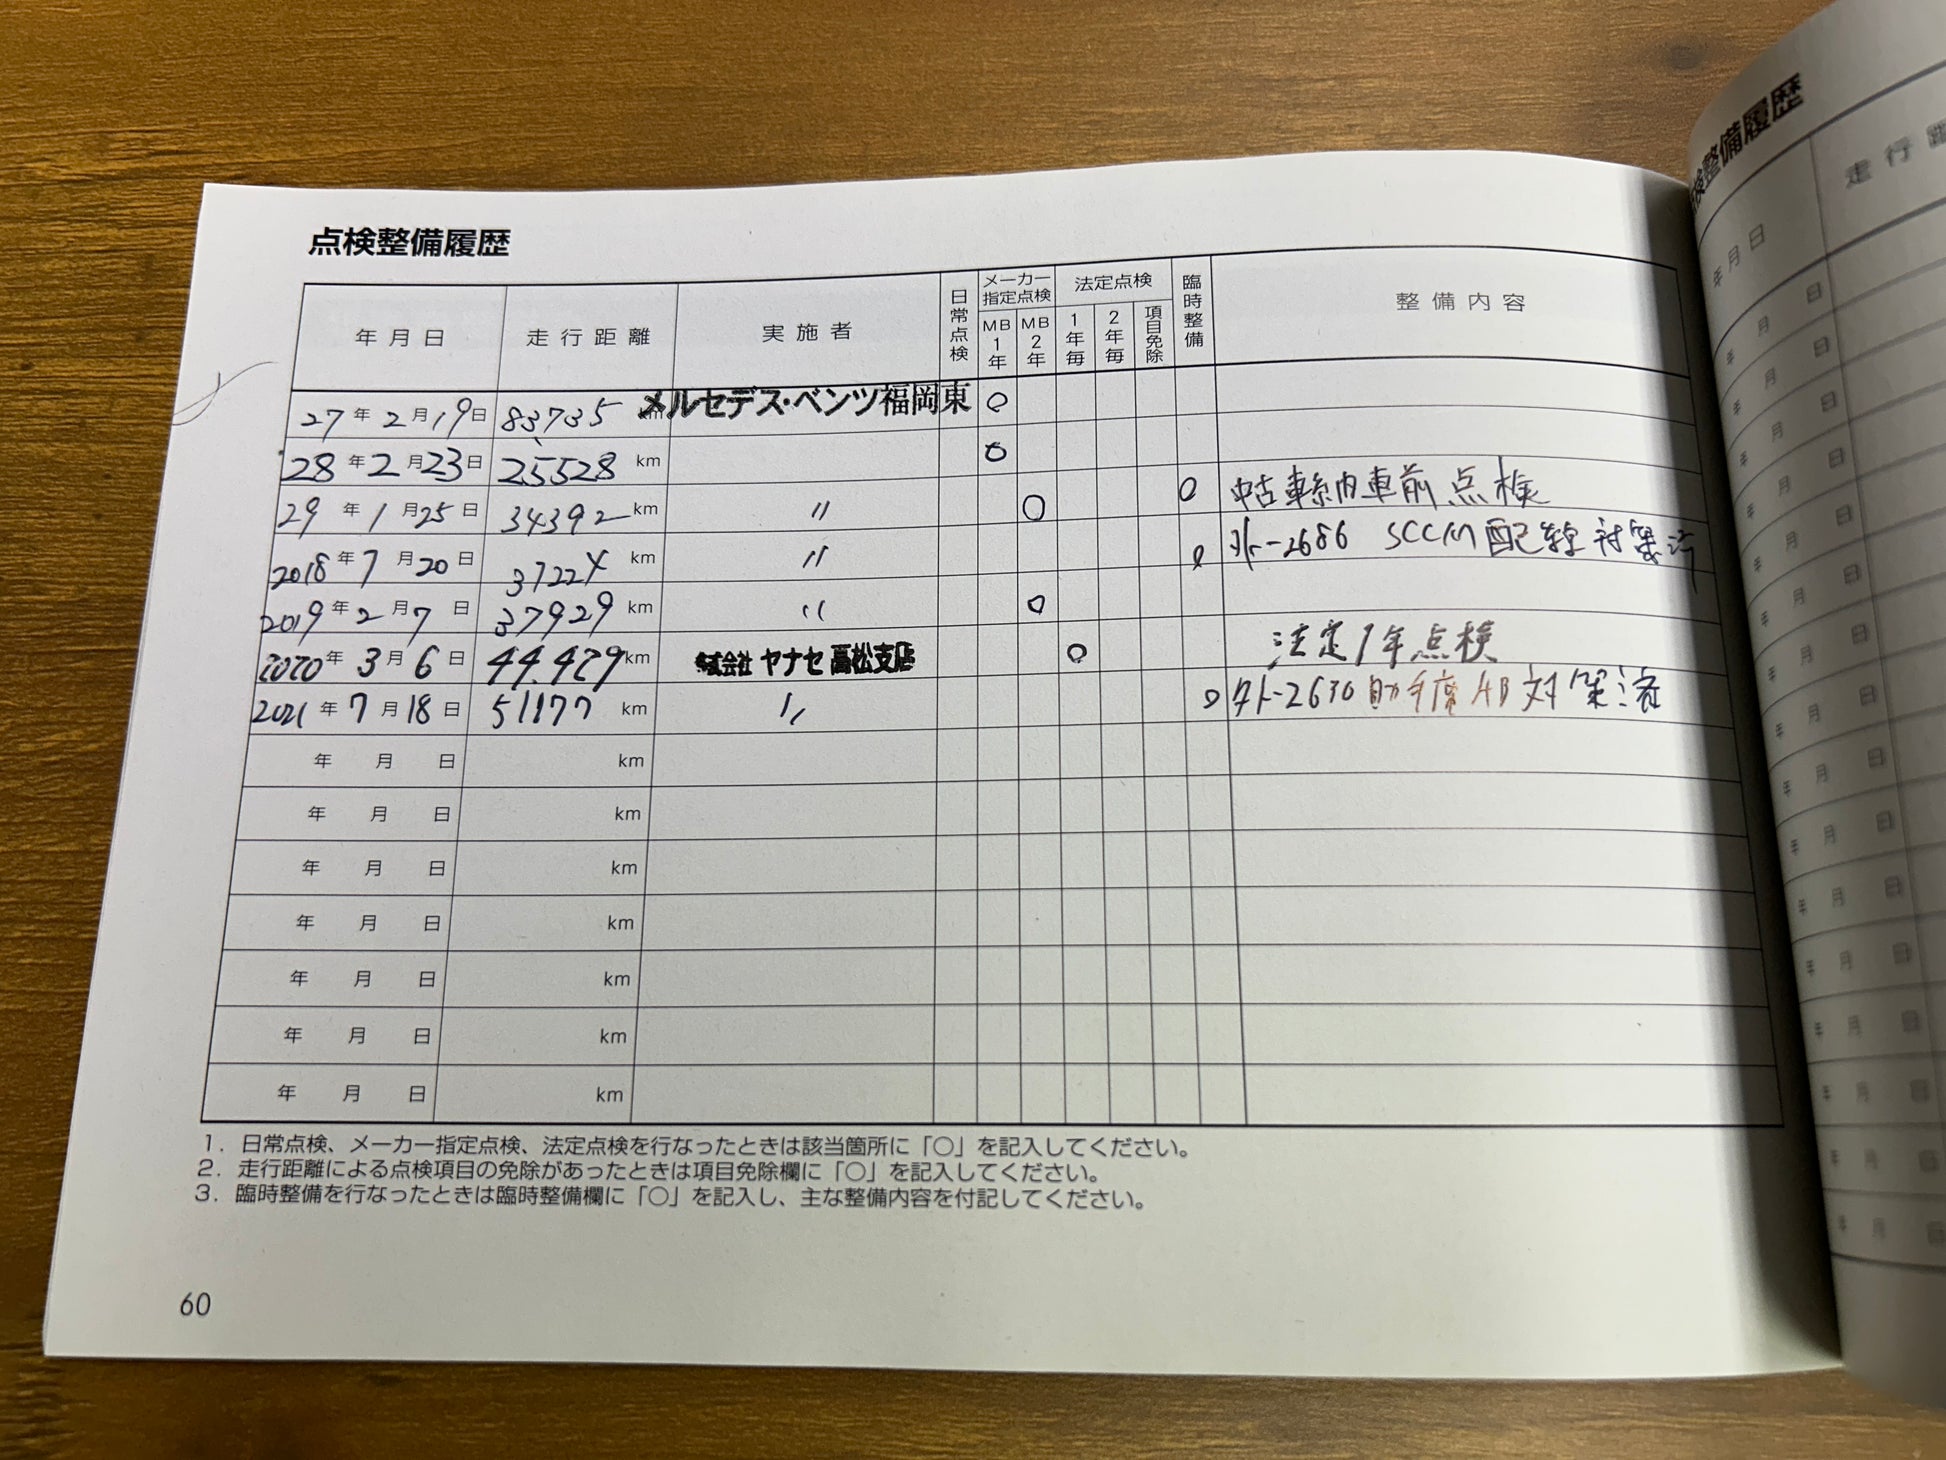 点検整備履歴
年月日 走行距離 実施者 日常点検 メーカー指定点検 MB1年 MB2年 法定点検 1年毎 2年毎 項目免除 臨時整備 整備内容
27年2月19日 83735 km メルセデス・ベンツ福岡東 ○
28年2月23日 25528 km ○
29年1月25日 34392 km 〃 ○ ○ 中古車納車前点検
2018年7月20日 37224 km 〃 ○ 外-2686 SCCM配線対策済
2019年2月7日 37929 km 〃 ○
2020年3月6日 44.429 km 株式会社 ヤナセ 高松支店 ○ 法定1年点検
2021年7月18日 51177 km 〃 ○ 外-2630 助手席AB対策済
年 月 日 km
年 月 日 km
年 月 日 km
年 月 日 km
年 月 日 km
年 月 日 km
年 月 日 km
1. 日常点検、メーカー指定点検、法定点検を行なったときは該当箇所に「○」を記入してください。
2. 走行距離による点検項目の免除があったときは項目免除欄に「○」を記入してください。
3. 臨時整備を行なったときは臨時整備欄に「○」を記入し、主な整備内容を付記してください。
60
検整備履歴
年月日 走行距
年 月 日
年 月 日
年 月 日
年 月 日
年 月 日
年 月 日
年 月 日
年 月 日
年 月 日
年 月 日
年 月 日
年 月 日
年 月 日
年 月 日